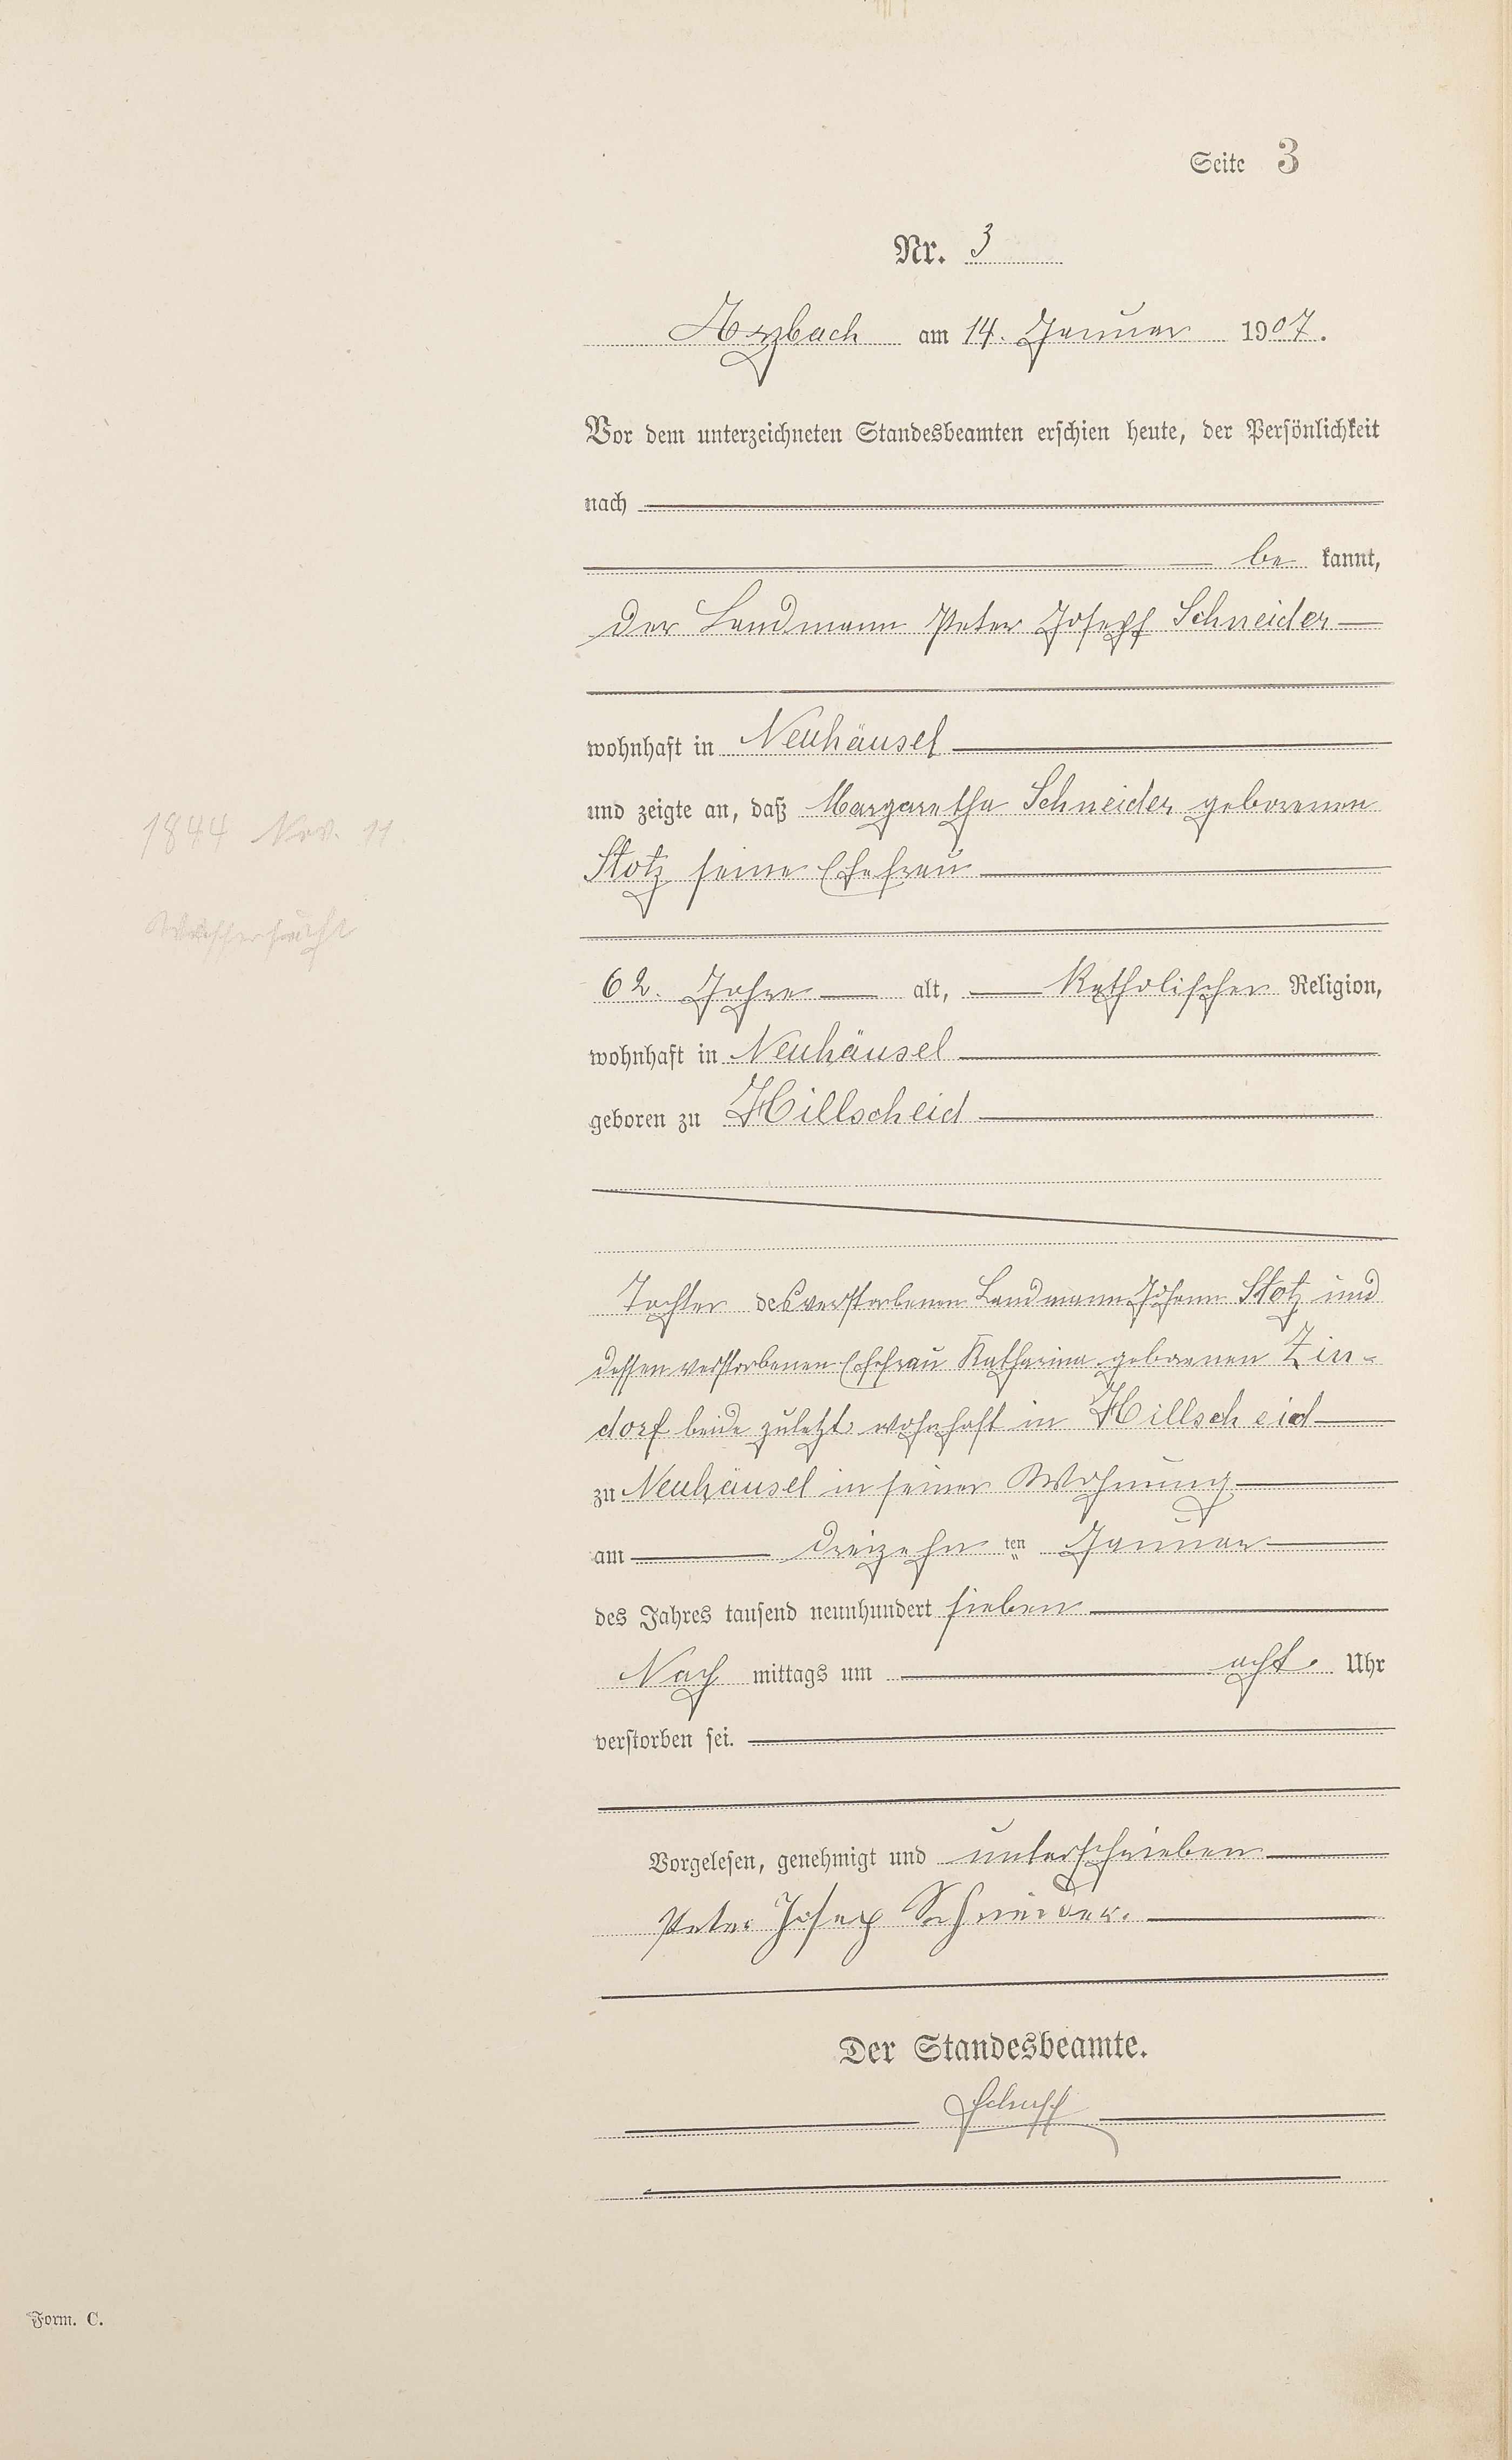 Seite 3
Nr. 3
Arzbach am 14. Januar 1907.
Vor dem unterzeichneten Standesbeamten erschien heute, der Persönlichkeit
nach
be kannt,
der Landmann Peter Joseph Schneider
wohnhaft in Neuhäusel
und zeigte an, daß Margaretha Schneider geborenen
1844 Nov. 11.
Stotz seine Ehefrau
Wassersucht
62. Jahre alt, Katholischer Religion,
wohnhaft in Neuhäusel
geboren zu Hillscheid
Tochter des verstorbenen Landmann Johann Stotz und
dessen verstorbenen Ehefrau Katharina geborenen Zin-
dorf beide zuletzt wohnhaft in Hillscheid
zu Neuhäusel in seiner Wohnung
am dreizehn ten Januar
des Jahres tausend neunhundert sieben
Nach mittags um acht Uhr
verstorben sei.
Vorgelesen, genehmigt und unterschrieben
Peter Josep Schneider.
Der Standesbeamte.
Form. C.